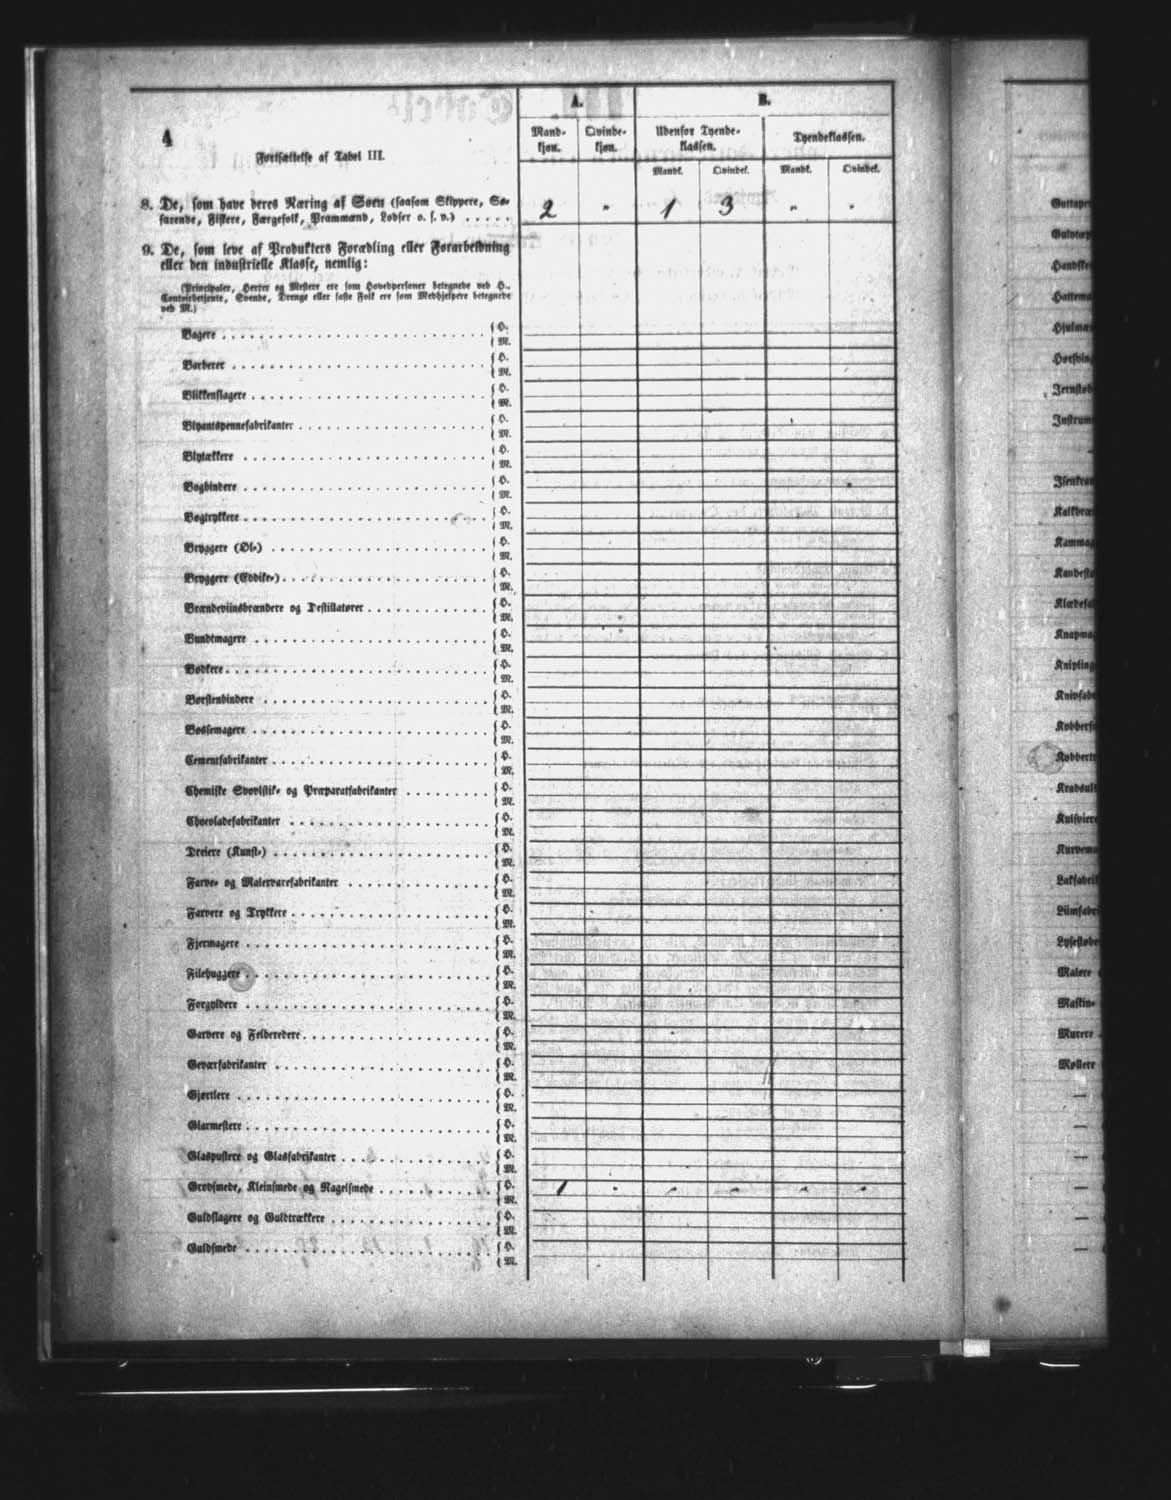 4
Fortsættelse af Tabel III.
A.
B.
Mand-
kjøn.
Qvinde-
kjøn.
Udenfor Tyende-
klassen.
Tyendeklassen.
Mandk.
Qvindek.
Mandk.
Qvindek.
8. De, som have deres Næring af Søen (saasom Skippere, Sø-
farende, Fiskere, Færgefolk, Prammænd, Lodser o. s. v.) . . . . . 2 " 1 3 " "
9. De, som leve af Produkters Forædling eller Forarbeidning
eller den industrielle Klasse, nemlig:
(Principaler, Herrer og Mestere ere som Hovedpersoner betegnede ved H.,
Contoirbetjente, Svende, Drenge eller faste Folk ere som Medhjelpere betegnede
ved M.)
Bagere { H.
{ M.
Barberer { H.
{ M.
Blikkenslagere { H.
{ M.
Blyantspennefabrikanter { H.
{ M.
Blytækkere { H.
{ M.
Bogbindere { H.
{ M.
Bogtrykkere { H.
{ M.
Bryggere (Øl-) { H.
{ M.
Bryggere (Eddike-) { H.
{ M.
Brændeviinsbrændere og Destillatører { H.
{ M.
Bundtmagere { H.
{ M.
Bødkere { H.
{ M.
Børstenbindere { H.
{ M.
Bøssemagere { H.
{ M.
Cementfabrikanter { H.
{ M.
Chemiske Svovlstik- og Præparatfabrikanter { H.
{ M.
Chocoladefabrikanter { H.
{ M.
Dreiere (Kunst-) { H.
{ M.
Farve- og Malervarefabrikanter { H.
{ M.
Farvere og Trykkere { H.
{ M.
Fjermagere { H.
{ M.
Filehuggere { H.
{ M.
Forgyldere { H.
{ M.
Garvere og Feldberedere { H.
{ M.
Geværfabrikanter { H.
{ M.
Gjørtlere { H.
{ M.
Glarmestere { H.
{ M.
Glaspustere og Glasfabrikanter { H.
{ M.
Grovsmede, Kleinsmede og Nagelsmede { H. 1 " " " " "
{ M.
Guldslagere og Guldtrækkere { H.
{ M.
Guldsmede { H.
{ M.